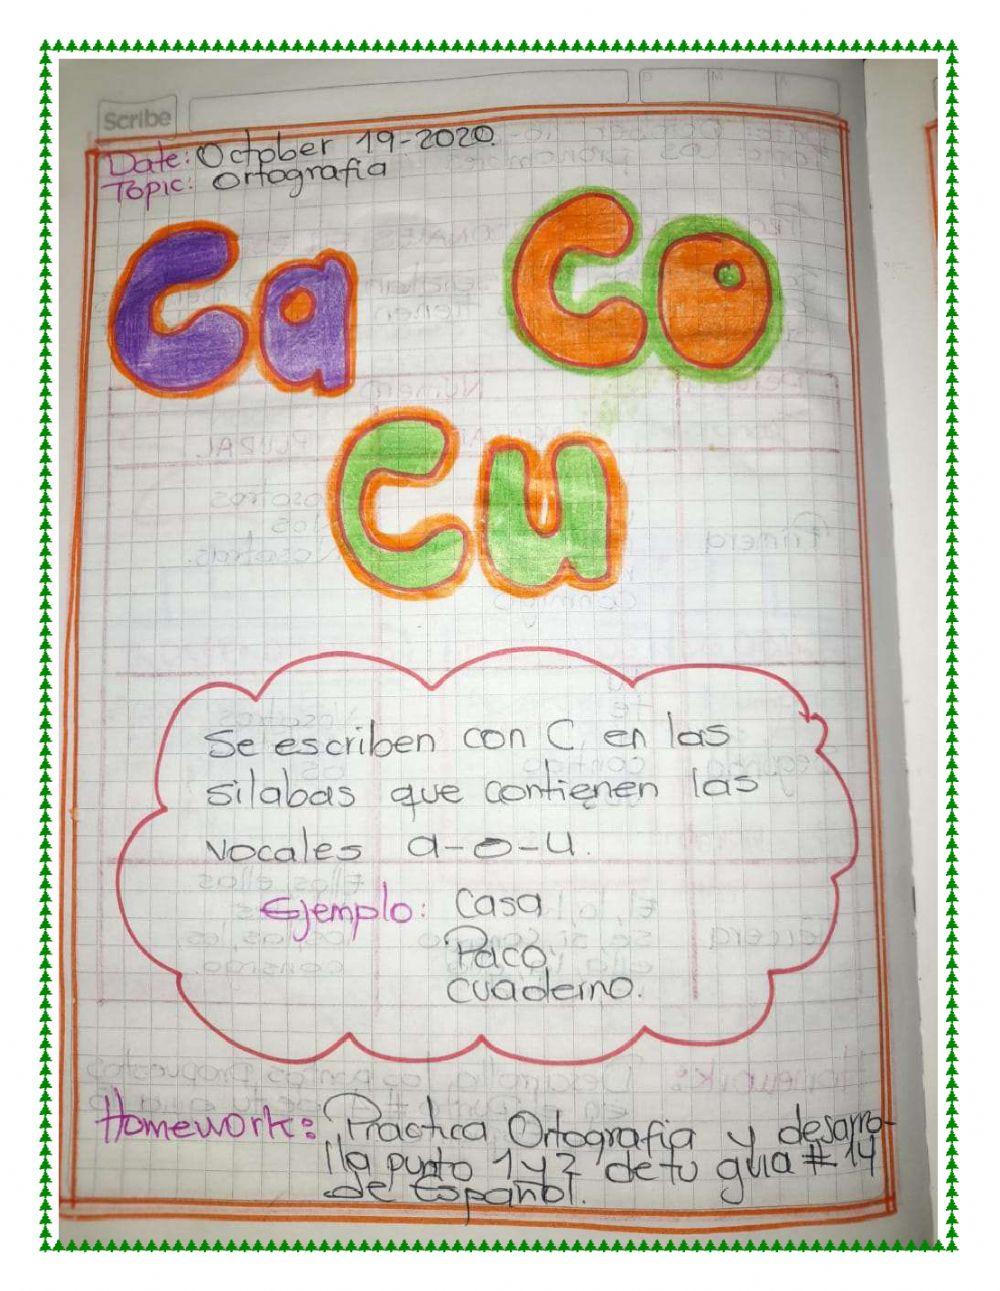 Scribe
Date: October 19-2020.
Topic: Ortografia
Ca Co
Cu
Se escriben con C, en las
silabas que contienen las
vocales a-o-u.
Ejemplo: Casa
Paco,
cuaderno.
Homework: Practica Ortografia y desarro-
lla punto 1 y 2 de tu guia # 14
de Español.